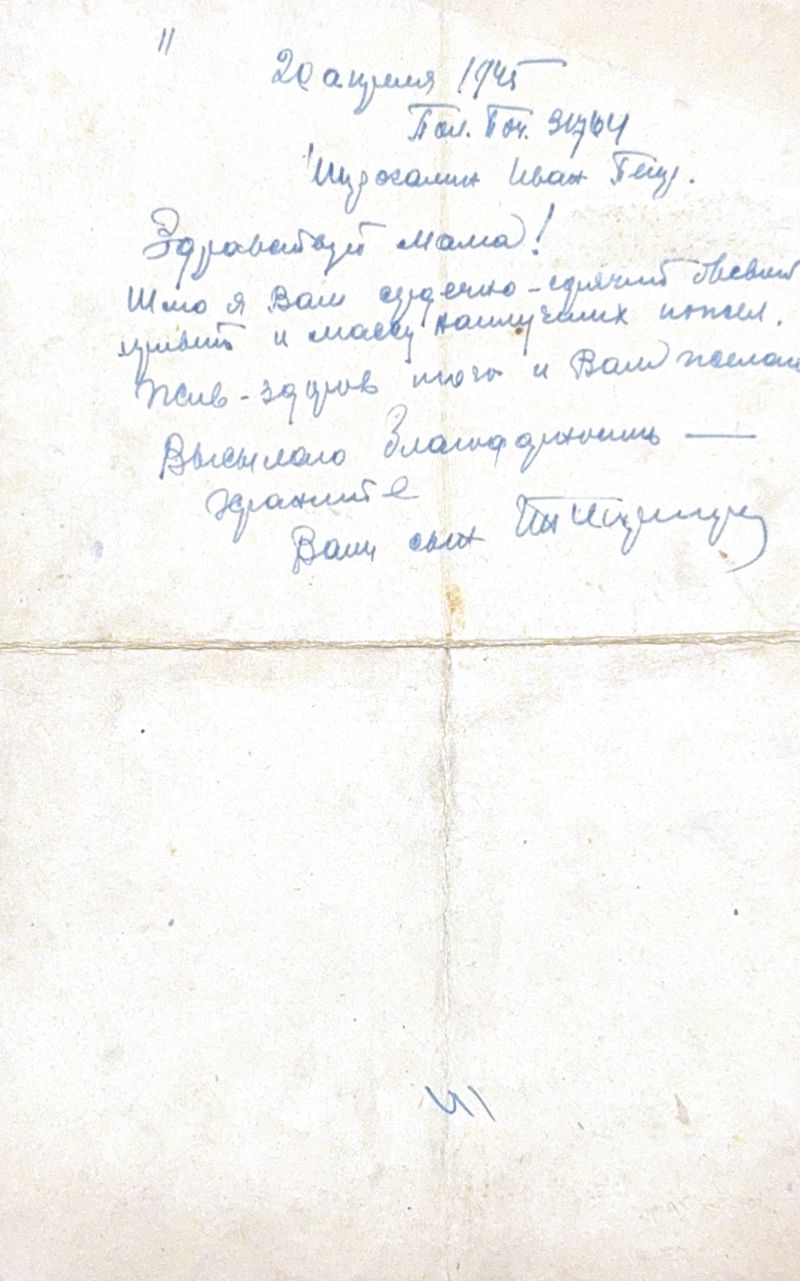 11
20 апреля 1945
Пол. Поч. 31764
Иван Петр.
Здравствуй мама!
Шлю я Вам сердечно-горячий боевой
привет и массу наилучших пожел.
Жив-здоров того и Вам желаю
Высылаю Благодарность —
храните
Ваш сын